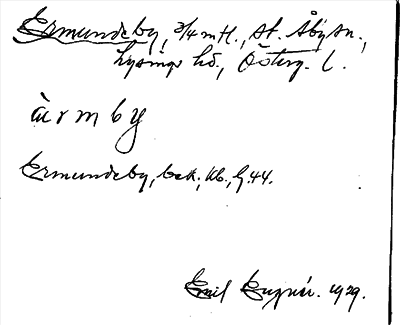 Ermundeby, 3/4 mtl., St. Åby sn.,
Lysings hd., Österg. l.
ärmby
Ermundeby, bek., kb., G.44.
Emil 1929.